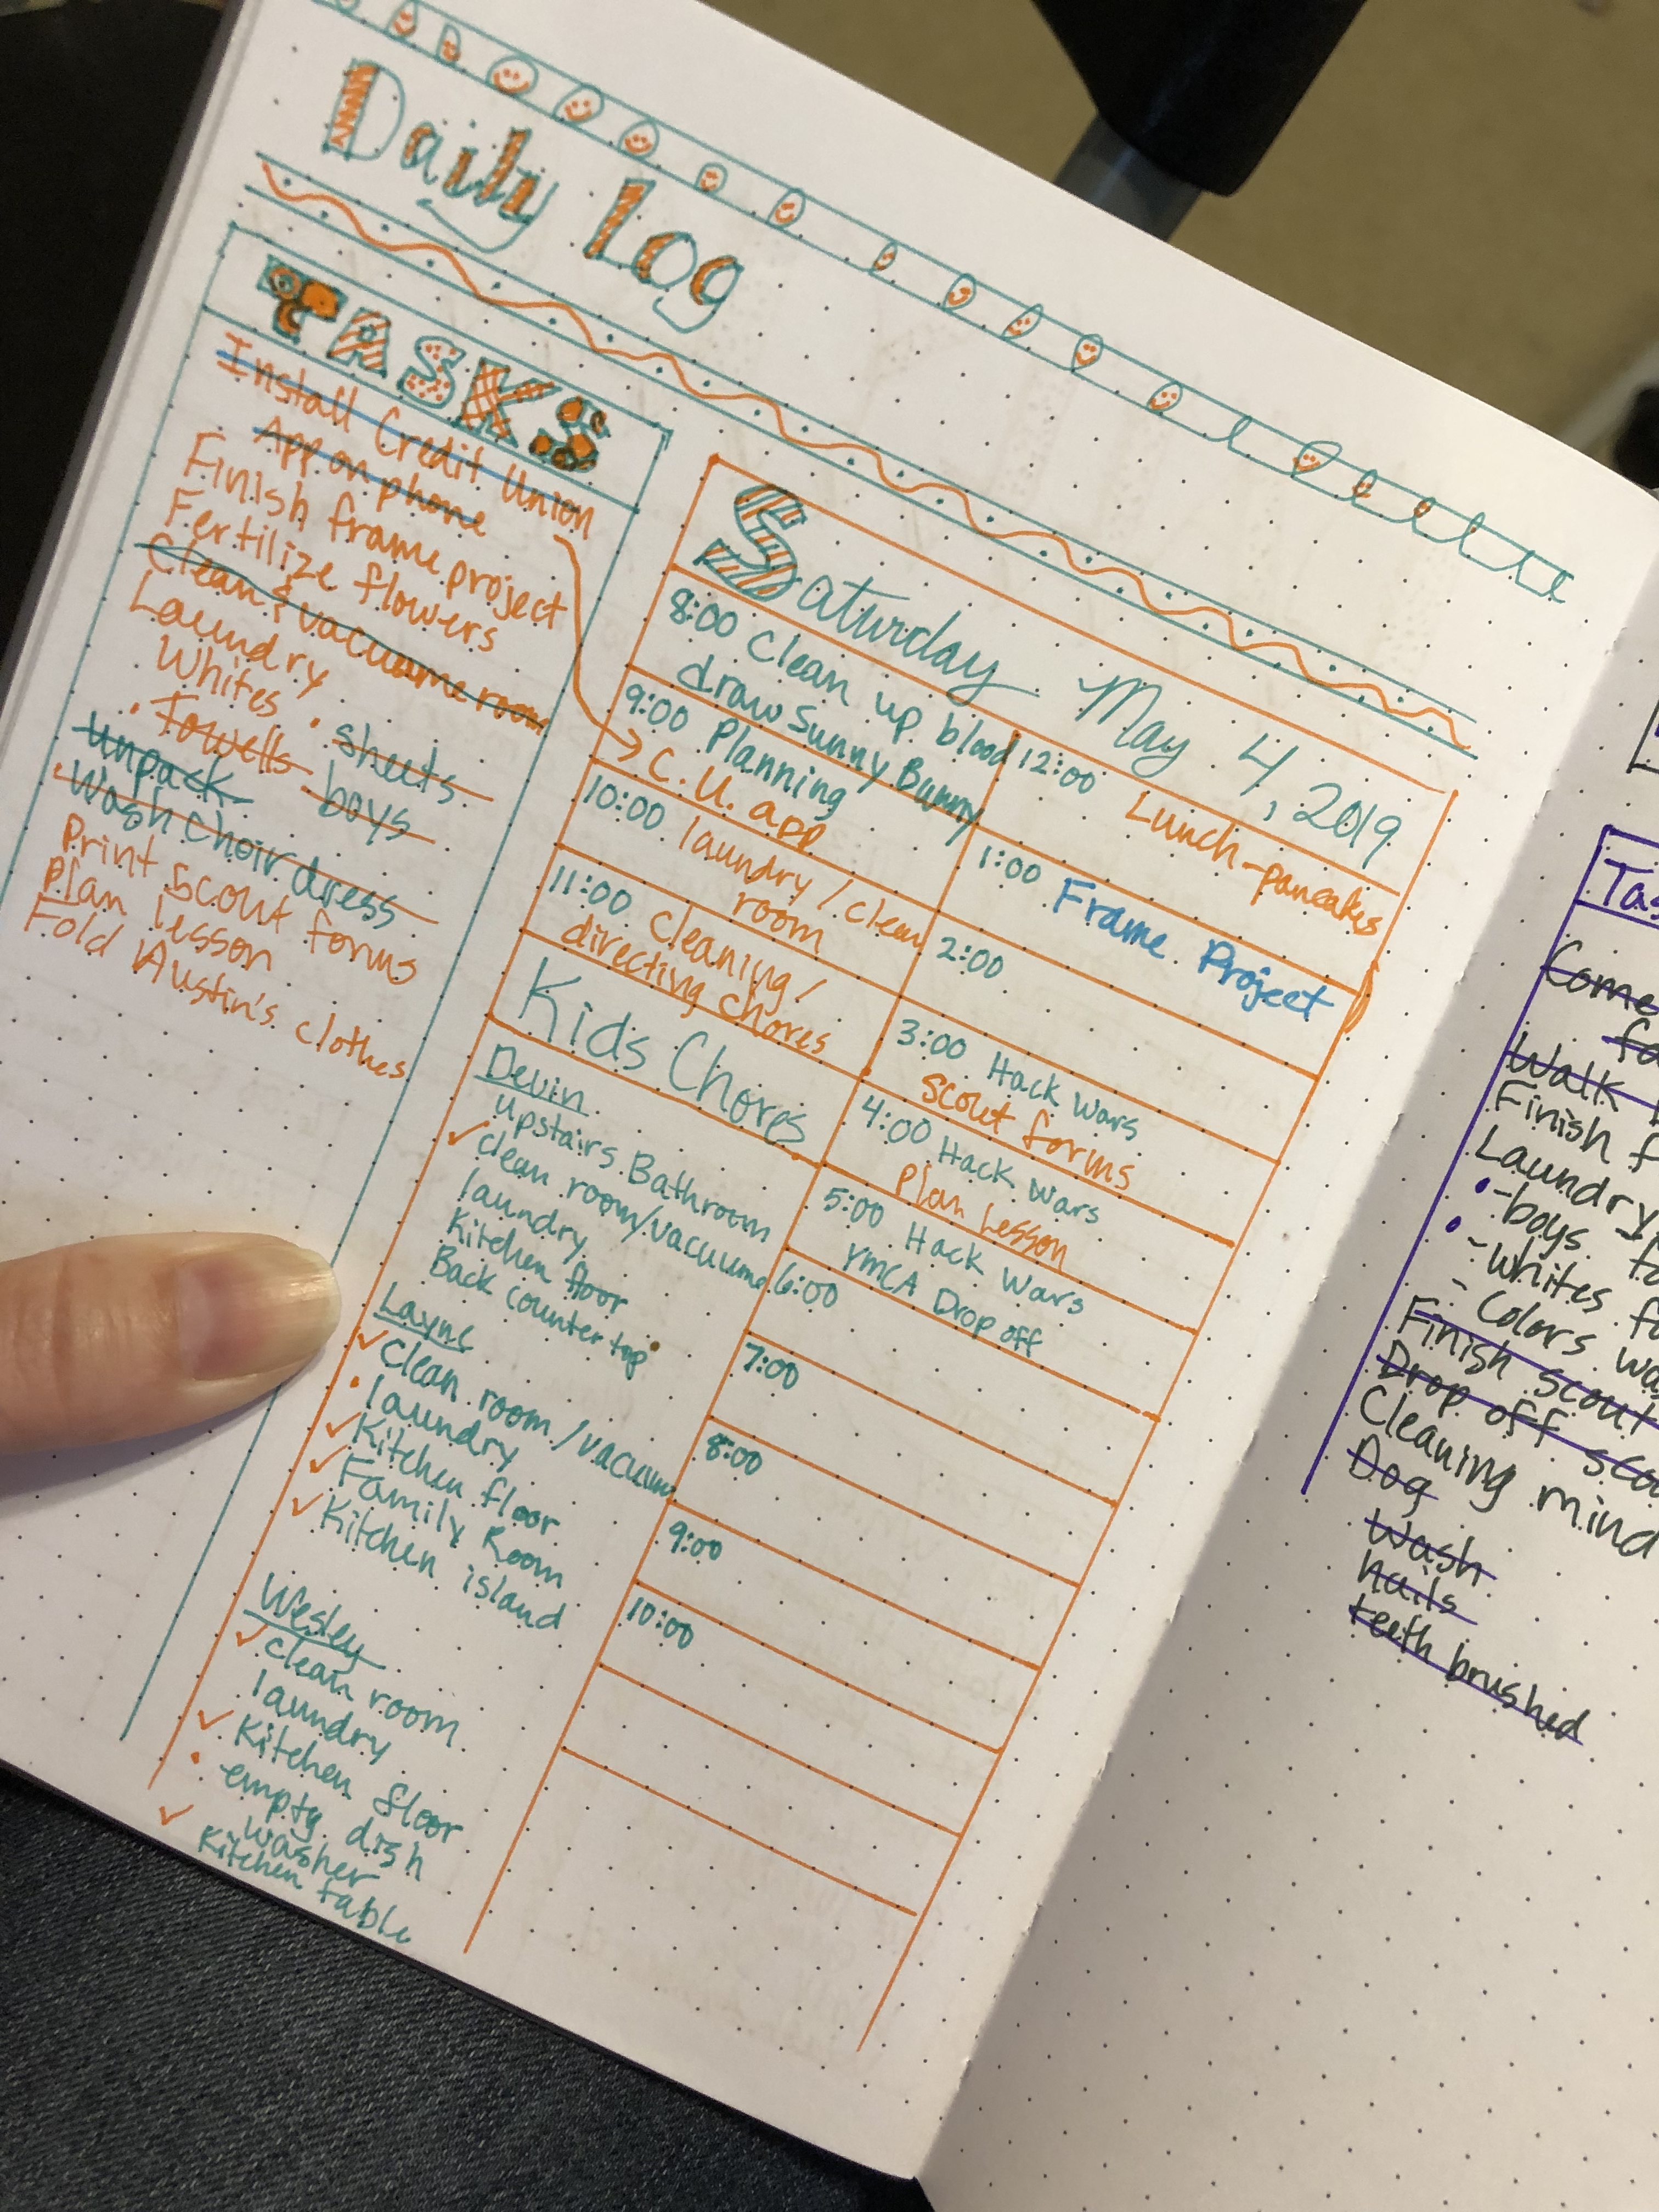 Daily Log
TASKS
Install Credit Union
App on phone
Finish frame project
Fertilize flowers
Clean & vacuume room
Laundry
Whites • sheets
• Towells • boys
Unpack
• Wash choir dress
Print Scout forms
Plan lesson
Fold Austin's clothes
Saturday May 4, 2019
8:00 Clean up blood
draw Sunny Bunny
9:00 Planning
→ C.U. app
10:00 laundry / clean
room
11:00 Cleaning /
directing chores
12:00 Lunch-pancakes
1:00 Frame Project
2:00
3:00 Hack Wars
Scout forms
4:00 Hack Wars
Plan Lesson
5:00 Hack Wars
YMCA Drop off
6:00
7:00
8:00
9:00
10:00
Kids Chores
Devin
upstairs Bathroom
✓ clean room/vacuume
laundry
Kitchen floor
Back counter top
Layne
✓ Clean room / vacuum
• laundry
✓ Kitchen floor
✓ Family Room
✓ Kitchen island
Wesley
✓ clean room
laundry
✓ Kitchen floor
• empty dish
washer
✓ Kitchen table
Tas
Come
fa
Walk
Finish f
Laundry
• - boys fo
• - whites fo
- Colors wa
Finish scout
Drop off sco
Cleaning mind
Dog
Wash
nails
teeth brushed